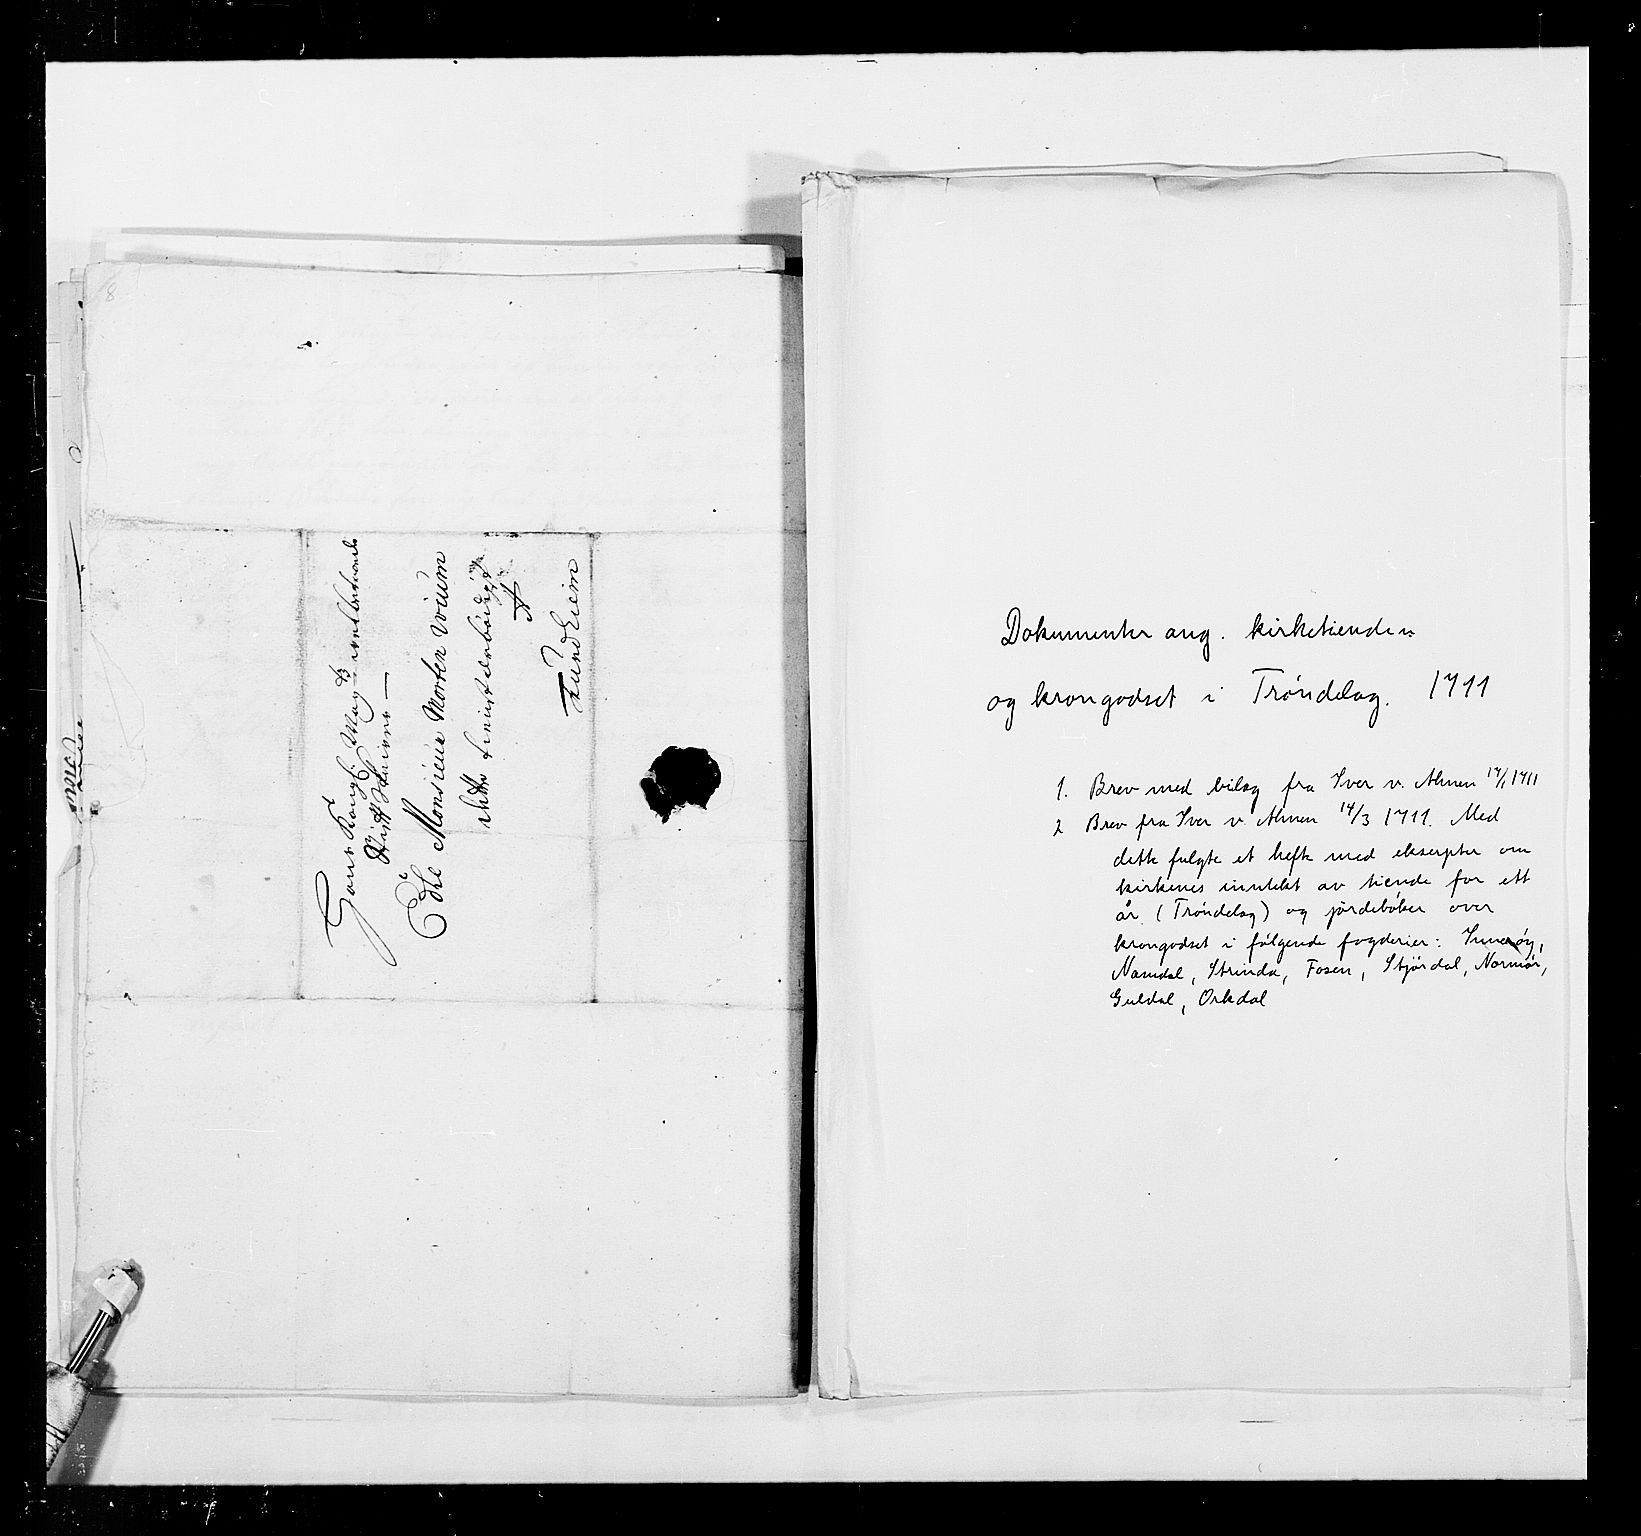 8
Hans Kongl. Mayts
Edle Monsieur Morten Wium
A
Trundheim
Dokumenter ang. kirketienden
og krongodset i Trøndelag. 1711
1. Brev med bilag fra Iver v. Ahnen 17/1 1711
2 Brev fra Iver v. Ahnen 14/3 1711. Med
dette fulgte et hefte med ekserpter om
kirkenes inntekt av tiende for ett
år (Trøndelag) og jordebøker over
krongodset i følgende fogderier: Inderøy,
Namdal, Strinda, Fosen, Stjørdal, Normør,
Guldal, Orkdal